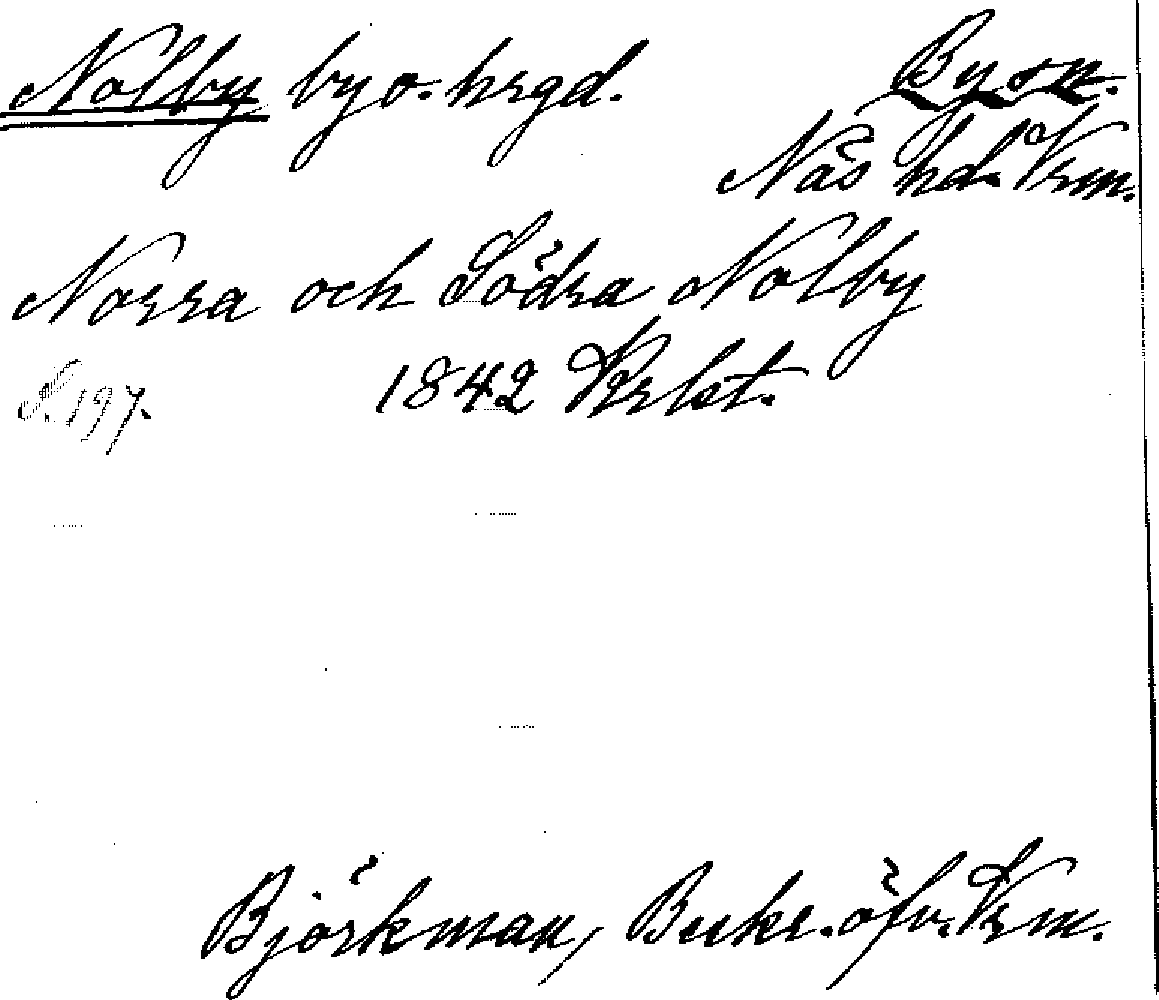 Nolby by o. hrgd. By sn.
Näs hd. Vrm.
Norra och Södra Nolby
S. 197. 1842 Krlst.
Björkman, Beskr. öfv. Vrm.